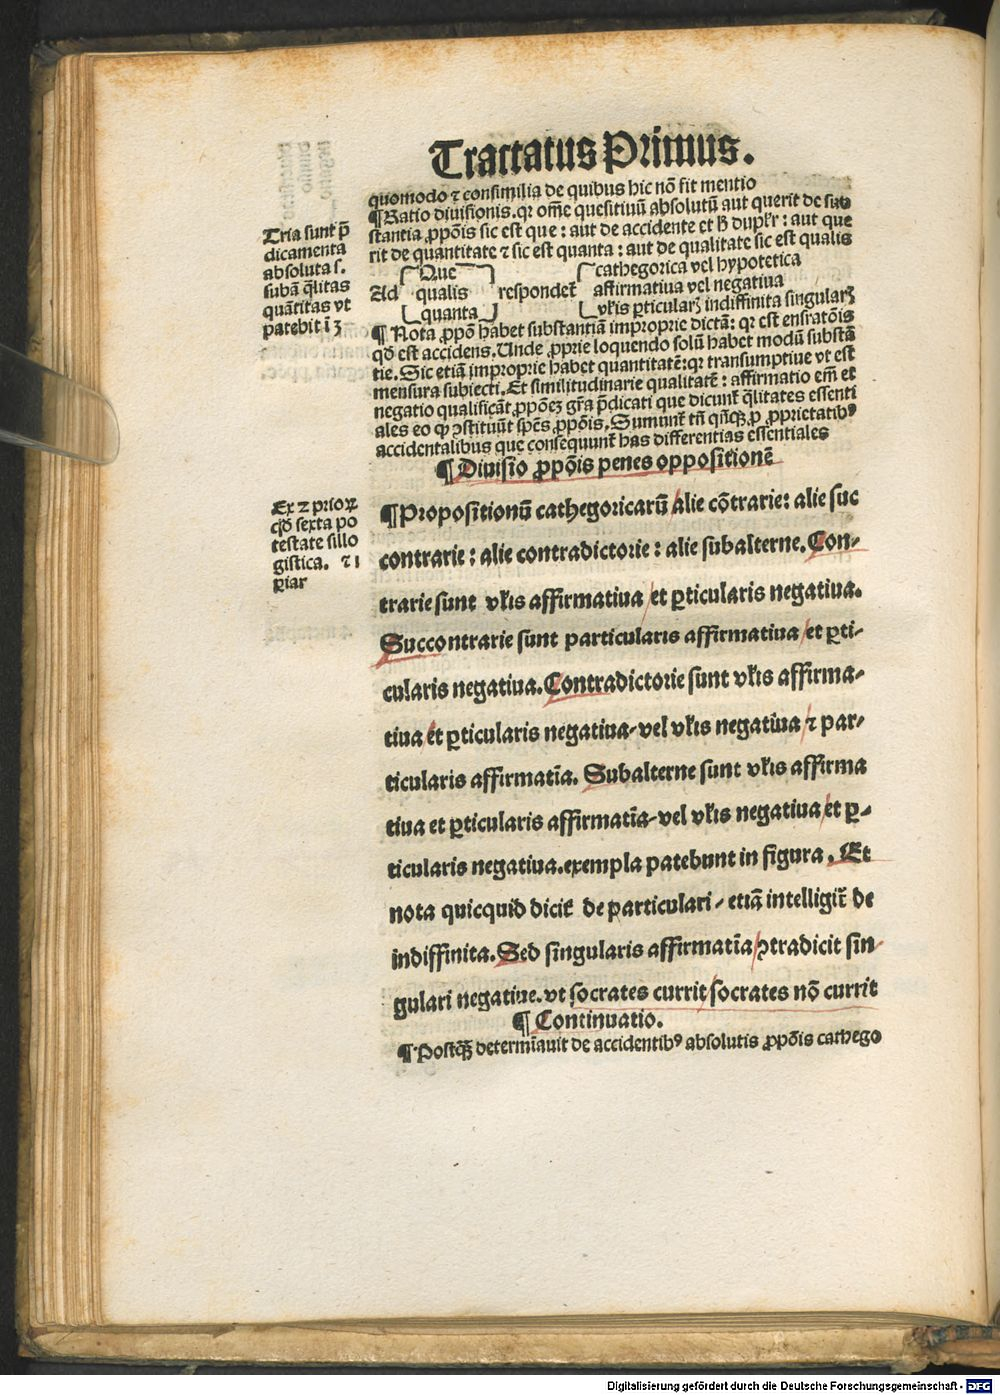 Tractatus Primus.
quomodo ⁊ consimilia de quibus hic nõ fit mentio
¶Ratio diuisionis. qꝛ om̃e quesitiuũ absolutũ aut querit de sub
stantia ꝓpõis sic est que : aut de accidente et ħ duplr̃ : aut que
rit de quantitate ⁊ sic est quanta : aut de qualitate sic est qualis
Tria sunt p̃
dicamenta
absoluta s.
subã q̃litas
quãtitas vt
patebit ĩ 3
Ad
Que
qualis
quanta
respondet̃
cathegorica vel hypotetica
affirmatiua vel negatiua
vƚis ꝑticularꝫ indiffinita singularꝫ
¶ Nota ꝓpõ habet substantiã improprie dictã: qꝛ est ens rat̃õis
qđ est accidens. Unde ꝓprie loquendo solũ habet modũ substã
tie. Sic etiã improprie habet quantitatẽ: qꝛ transumptiue vt est
mensura subiecti. Et similitudinarie qualitatẽ : affirmatio em̃ et
negatio qualificãt ꝓpõeꝫ gr̃a p̃dicati que dicunt̃ q̃litates essenti
ales eo ꝙ ꝯstituũt sp̃es ꝓpõis. Sumunt̃ tñ qñqꝫ ꝓ ꝓprietatibꝰ
accidentalibus que consequunt̃ has differentias essentiales
¶Diuisio ꝓpõis penes oppositionẽ
Ex ⁊ prioꝝ
qđ sexta po
testate sillo
gistica. ⁊ 1
ꝑiar
¶Propositionũ cathegoricarũ alie cõtrarie: alie suc
contrarie : alie contradictorie : alie subalterne. Con-
trarie sunt vƚis affirmatiua et ꝑticularis negatiua.
Succontrarie sunt particularis affirmatiua et ꝑti-
cularis negatiua. Contradictorie sunt vƚis affirma-
tiua et ꝑticularis negatiua-vel vƚis negatiua ⁊ par-
ticularis affirmatĩa. Subalterne sunt vƚis affirma
tiua et ꝑticularis affirmatĩa-vel vƚis negatiua et ꝑ-
ticularis negatiua. exempla patebunt in figura. Et
nota quicquid dicit̃ de particulari - etiã intelligit̃ de
indiffinita. Sed singularis affirmatĩa ꝯtradicit sin-
gulari negatiue. vt socrates currit socrates nõ currit
¶ Continuatio.
¶ Postq̃ꝫ determĩauit de accidentibꝰ absolutis ꝓpõis cathego
Digitalisierung gefördert durch die Deutsche Forschungsgemeinschaft - DFG